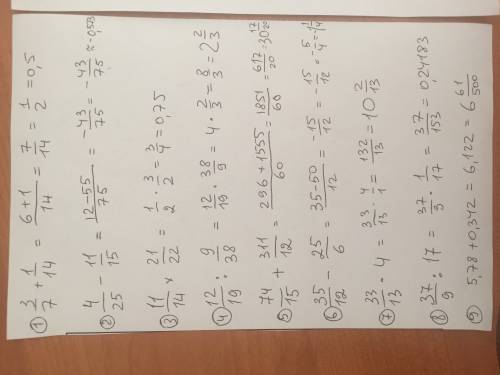 ① 3/7 + 1/14 = 6+1/14 = 7/14 = 1/2 = 0,5
② 4/25 - 11/15 = 12-55/75 = -43/75 = -43/75 ≈ -0,573
③ 11/14 × 21/22 = 1/2 · 3/2 = 3/4 = 0,75
④ 12/19 : 9/38 = 12/19 · 38/9 = 4 · 2/3 = 8/3 = 2 2/3
⑤ 74/15 + 311/12 = 296+1555/60 = 1851/60 = 617/20 = 30 17/20
⑥ 35/12 - 25/6 = 35-50/12 = -15/12 = -15/12 = 5/4 = 1 1/4
⑦ 33/13 · 4 = 33/13 · 4/1 = 132/13 = 10 2/13
⑧ 37/9 : 17 = 37/9 · 1/17 = 37/153 = 0,24183
⑨ 5,78 + 0,342 = 6,122 = 6 61/500